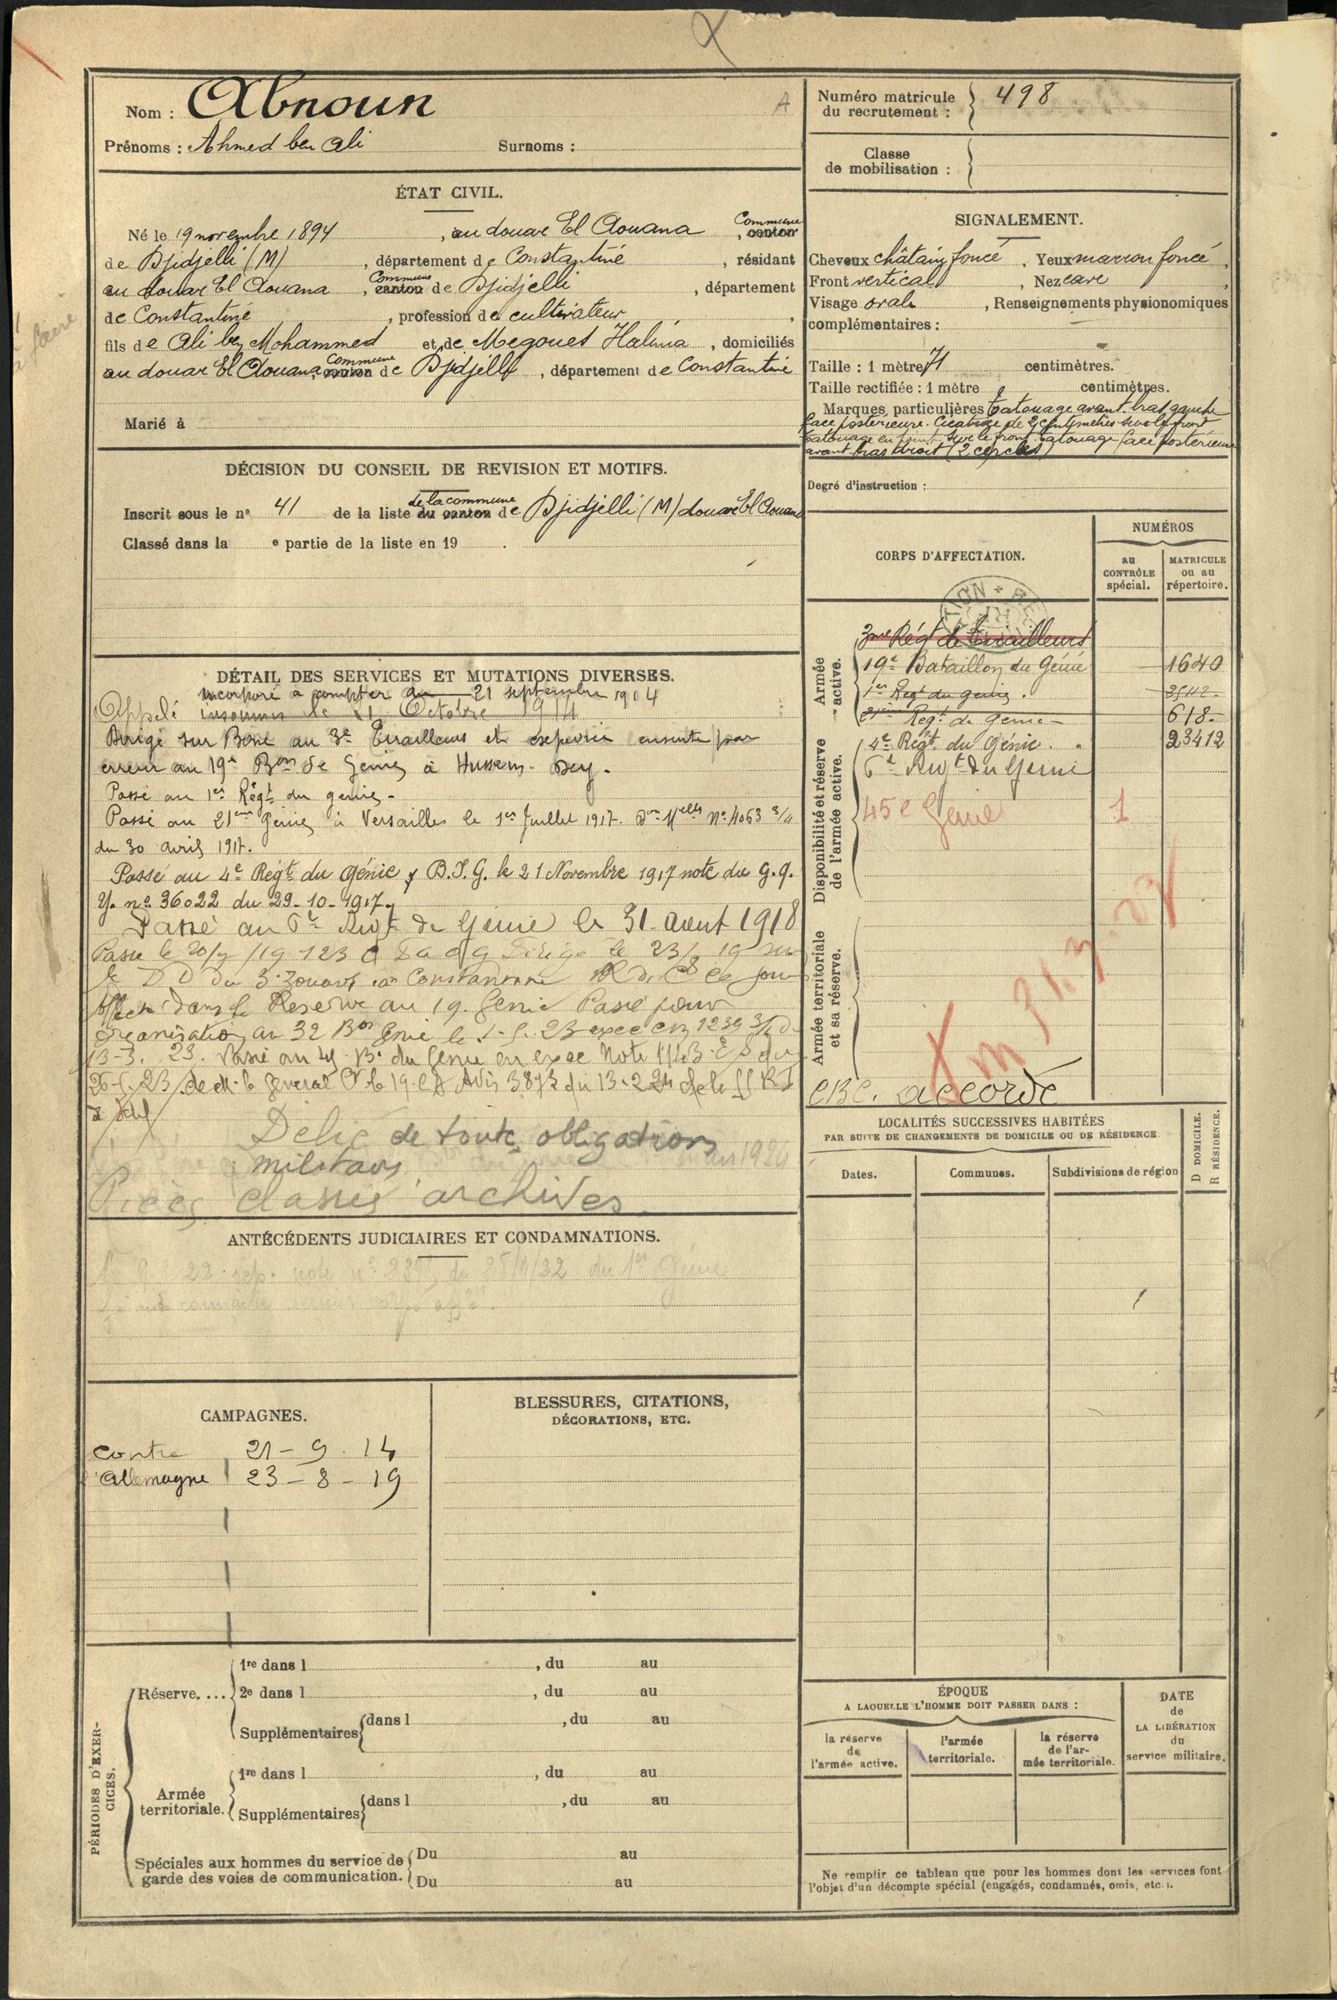 Nom : Abnoun
A
Prénoms : Ahmed ben Ali Surnoms :
ÉTAT CIVIL.
Né le 19 novembre 1894, au douar El Aouana, Commune canton
de Djidjelli (M), département de Constantine, résidant
au douar El Aouana, Commune canton de Djidjelli, département
de Constantine, profession de cultivateur,
fils de Ali ben Mohammed et de Megouet Halima, domiciliés
au douar El Aouana, Commune canton de Djidjelli, département de Constantine
Marié à
DÉCISION DU CONSEIL DE REVISION ET MOTIFS.
Inscrit sous le n° 41 de la liste de la commune du canton de Djidjelli (M) douar El Aouana
Classé dans la e partie de la liste en 19 .
DÉTAIL DES SERVICES ET MUTATIONS DIVERSES.
incorporé à compter du 21 septembre 1914
Appelé insoumis le 21 Octobre 1914
Dirigé sur Bône au 3e Tirailleurs et ensuite par
erreur au 19e Bon de Génie à Hussein-Dey.
Passé au 1er Régt du génie.
Passé au 21ème Génie à Versailles le 1er Juillet 1917. Don Mlle N° 4063 3/4
du 30 avril 1917.
Passé au 4e Régt du Génie, B.I.G. le 21 Novembre 1917 note du G.Q.
G. n° 36022 du 29-10-1917.
Passé au 6e Rgt de Génie le 31 aout 1918
Passé le 20/7/19 Dirigé le 23/8 19 sur
le D D du 3e Zouaves à Constantine
Affecté dans la Réserve au 19 Génie Passé pour
organisation au 32 Bon Génie le
13-3. 23. Passé au 45 Bn du Génie en exec Note
26-5-23 de M. le Général Ct le 19 CA Avis 3873 du 13-2-24
Délié de toute obligation
militaire
Pièces classées archives.
ANTÉCÉDENTS JUDICIAIRES ET CONDAMNATIONS.
note n° du 25/4/22 du 1er Génie
CAMPAGNES.
Contre 21 - 9 - 14
l'Allemagne 23 - 8 - 19
BLESSURES, CITATIONS,
DÉCORATIONS, ETC.
PÉRIODES D'EXERCICES.
Réserve.... 1re dans l , du au
2e dans l , du au
Supplémentaires dans l , du au
Armée territoriale. 1re dans l , du au
Supplémentaires dans l , du au
Spéciales aux hommes du service de garde des voies de communication. Du au
Du au
Numéro matricule du recrutement : 498
Classe de mobilisation :
SIGNALEMENT.
Cheveux châtain foncé, Yeux marron foncé,
Front vertical, Nez cave
Visage ovale, Renseignements physionomiques
complémentaires :
Taille : 1 mètre 71 centimètres.
Taille rectifiée : 1 mètre centimètres.
Marques particulières tatouage avant bras gauche
face postérieure. Cicatrice de 2 centimètres sur le front
tatouage en point sur le front, tatouage face postérieure
avant bras droit (2 cercles)
Degré d'instruction :
CORPS D'AFFECTATION.
NUMÉROS
au CONTRÔLE spécial.
MATRICULE ou au répertoire.
Armée active.
3me Régt de tirailleurs
19e Bataillon du Génie 1640
1er Regt du genie.
21ème Régt de Genie 618
Disponibilité et réserve de l'armée active.
4e Régt du Génie. 23412
6e Rgt du Genie
45e Génie 1
Armée territoriale et sa réserve.
CBC. accordé
LOCALITÉS SUCCESSIVES HABITÉES
PAR SUITE DE CHANGEMENTS DE DOMICILE OU DE RÉSIDENCE
Dates. Communes. Subdivisions de région
D DOMICILE.
R RÉSIDENCE.
ÉPOQUE
A LAQUELLE L'HOMME DOIT PASSER DANS :
la réserve de l'armée active.
l'armée territoriale.
la réserve de l'armée territoriale.
DATE de LA LIBÉRATION du service militaire.
Ne remplir ce tableau que pour les hommes dont les services font
l'objet d'un décompte spécial (engagés, condamnés, omis, etc.).